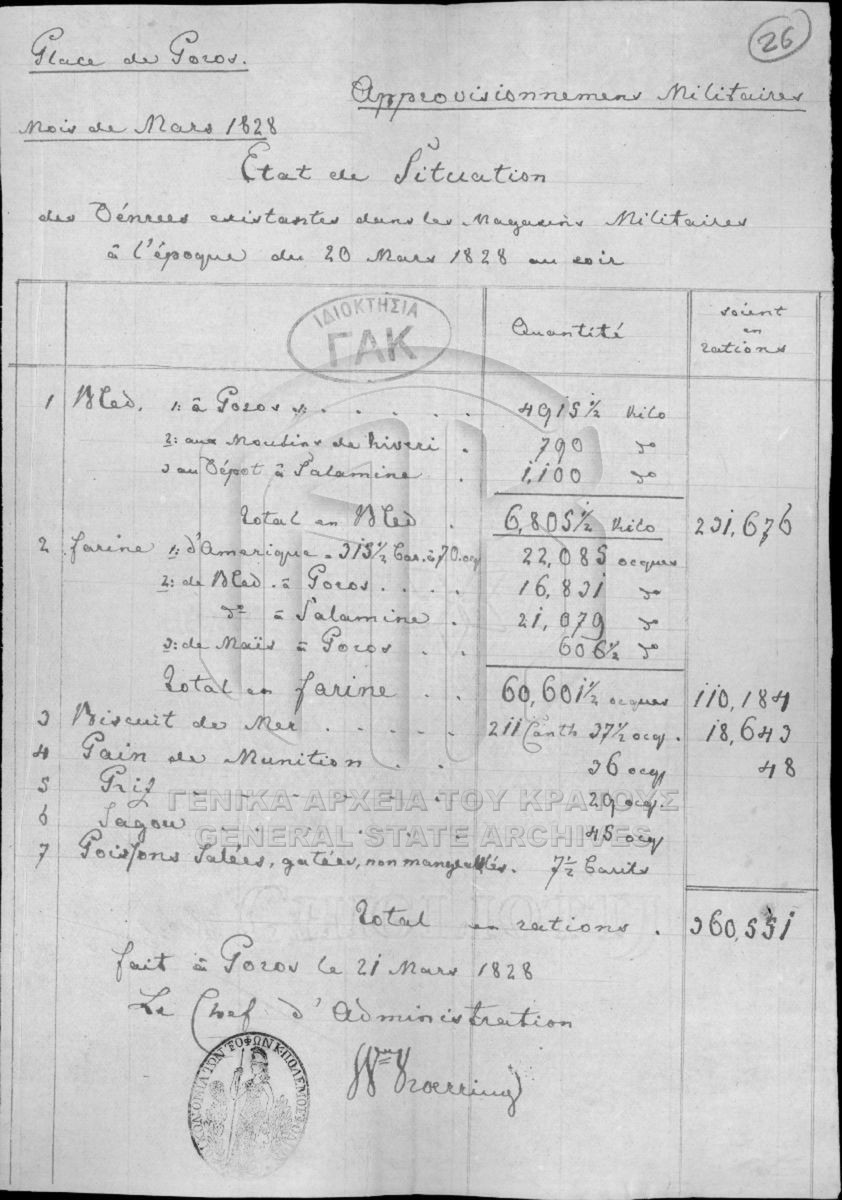 26
Place de Poros.
Approvisionnemens Militaires
Mois de Mars 1828
Etat de Situation
des Dénrées existantes dans les Magasins Militaires
à l'époque du 20 Mars 1828 au soir
ΙΔΙΟΚΤΗΣΙΑ
ΓΑΚ
Quantité
soient
en
rations
1 Bled. 1: à Poros . . . . . . 4915½ Kilo
2: aux Moulins de Kiveri . 790 do
3 au Dépot à Salamine . 1,100 do
Total en Bled . 6,805½ Kilo 231,676
2 farine 1: d'Amerique = 315½ bar. à 70. ocq 22,085 ocques
2: de Bled . à Poros . . . . 16,831 do
do à Salamine . 21,079 do
3: de Maïs à Poros . . 606½ do
Total en farine . . 60,601½ ocques 110,184
3 Biscuit de Mer . . . . . 211 Canth 37½ ocq. 18,643
4 Pain de Munition . . 36 ocq 48
5 Riz . . . . . . 29 ocq.
ΓΕΝΙΚΑ ΑΡΧΕΙΑ ΤΟΥ ΚΡΑΤΟΥΣ
6 Sagou . . . . . . 45 ocq
GENERAL STATE ARCHIVES
7 Poissons Salées, gatées, non mangeables. 7½ barils
Total en rations . 360,551
fait à Poros le 21 Mars 1828
Le Chef d'Administration